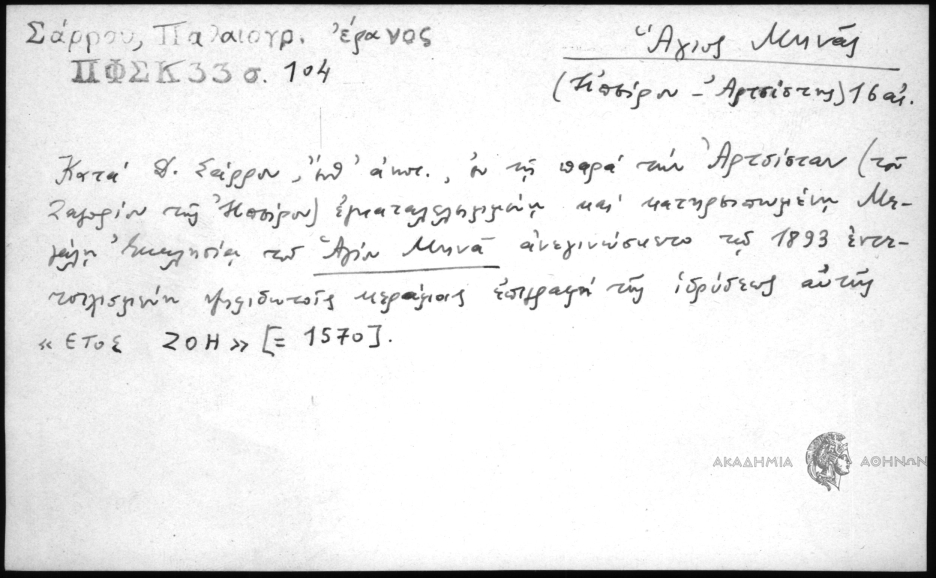 Σάρρου, Παλαιογρ. ἔρανος
ΠΦΣΚ 33 σ. 104
Ἅγιος Μηνᾶς
(Ἠπείρου - Ἀρτσίστης) 16 αἰ.
Κατά Δ. Σάρρου, ἔνθ' ἀνωτ., ἐν τῇ παρά τήν Ἀρτσίσταν (τοῦ
Ζαγορίου τῆς Ἠπείρου) ἐγκαταλελειμμένῃ καί κατηρειπωμένῃ Με-
γάλῃ Ἐκκλησίᾳ τοῦ Ἁγίου Μηνᾶ ἀνεγινώσκετο τῷ 1893 ἐντε-
τοιχισμένη ψηφιδωτοῖς κεράμοις ἐπιγραφή τῆς ἱδρύσεως αὐτῆς
« ΕΤΟΣ ΖΟΗ » [= 1570].
ΑΚΑΔΗΜΙΑ ΑΘΗΝΩΝ